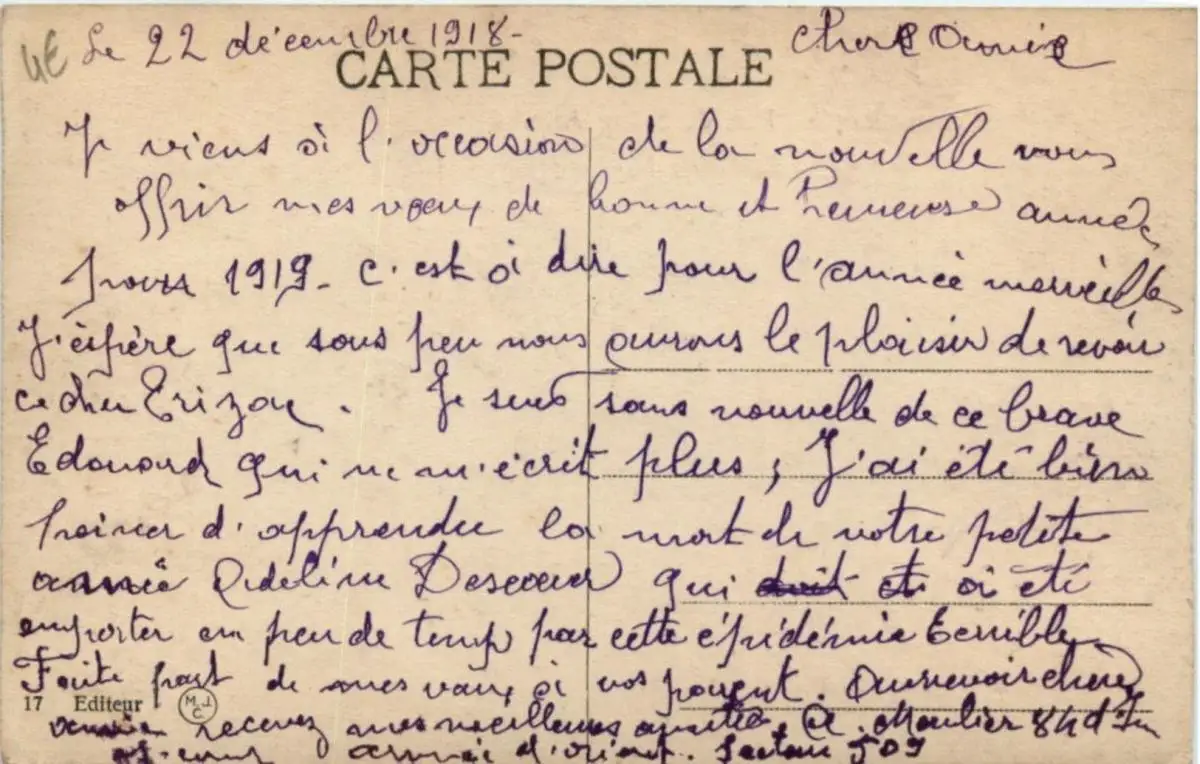 4€ Le 22 décembre 1918- Chere Amie
CARTE POSTALE
Je viens à l'occasion de la nouvelle vous
offrir mes vœux de bonne et année
pour 1919 - c'est à dire pour l'année merveille
J'éspère que sous peu nous aurons le plaisir de revoir
ce cher Erizay. Je suis sans nouvelle de ce brave
Edouard qui ne m'écrit plus; J'ai été bien
peiner d'apprendre la mort de votre petite
amie Adéline qui doit et à été
emporter en peu de temp par cette épidémie terrible
Faite part de mes vœux à vos parent. Aurevoir chère
17 Editeur M.J.C.
amie recevez mes meilleures amitiés. Moulier 84d
armée d'orient. Secteur 509